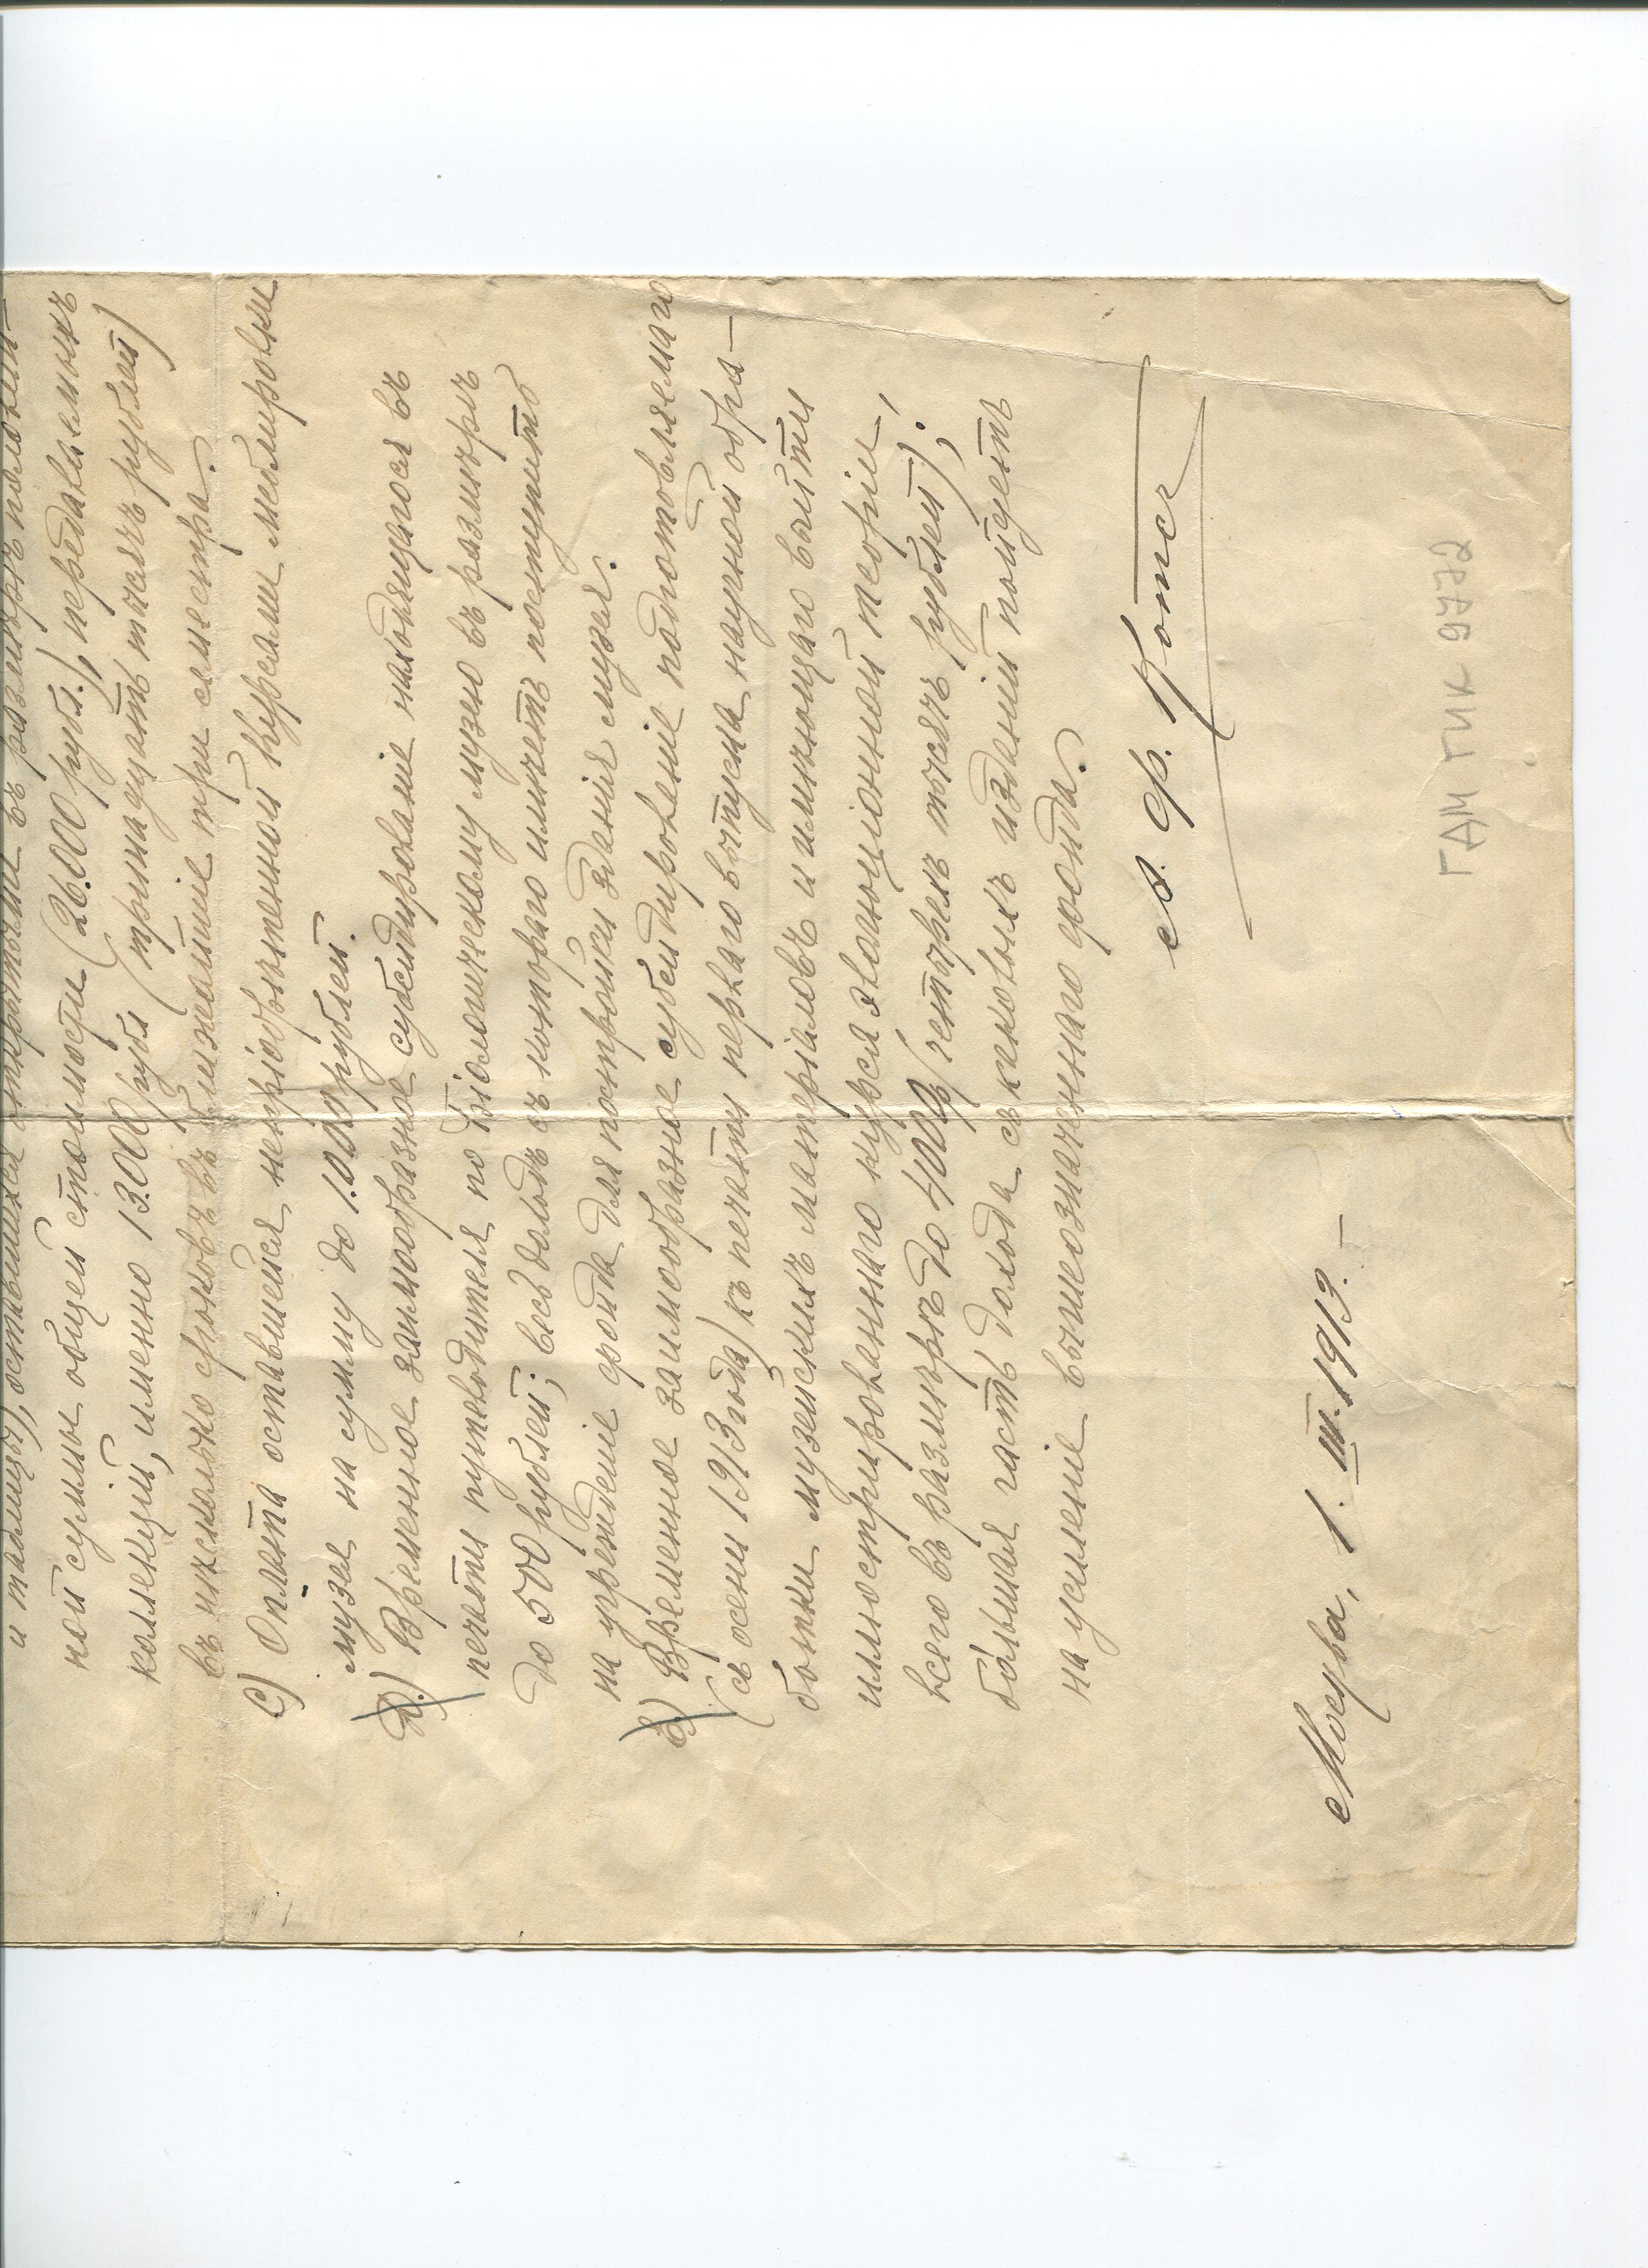 и таблицы), оставшихся открытыми въ размѣрѣ половин-
ной суммы общей стоимости (26.000 рубл.), передаваемыхъ
коллекцій, именно 13.000 рубл (тринадцать тысячъ рублей)
въ нѣсколько сроковъ въ ближайшіе три семестра.
С) Оплата оставшейся непріобрѣтенной курсами меблировки
музея на сумму до 1.000 рублей.
Д.) Временное заимообразное субсидированіе находящагося въ
печати путеводителя по Біологическому музею въ размѣрѣ
до 500 рублей; весь доходъ съ котораго имѣетъ поступить
на учрежденіе фонда для постройки зданія музея.
Временное заимообразное субсидированіе подготовляемаго
(съ осени 1913 года) къ печати перваго выпуска научной обра-
ботки музейскихъ матеріаловъ и имѣющаго выйти
иллюстрированнаго курса эволюціонной теоріи,
всего въ размѣрѣ до 4000 р (четырехъ тысячъ рублей);
бо́льшая часть дохода съ каковыхъ изданій пойдетъ
на усиленіе вышеозначеннаго фонда.
Котсъ
Москва, 1. III. 1913. –
ГДМ ГИК 9772